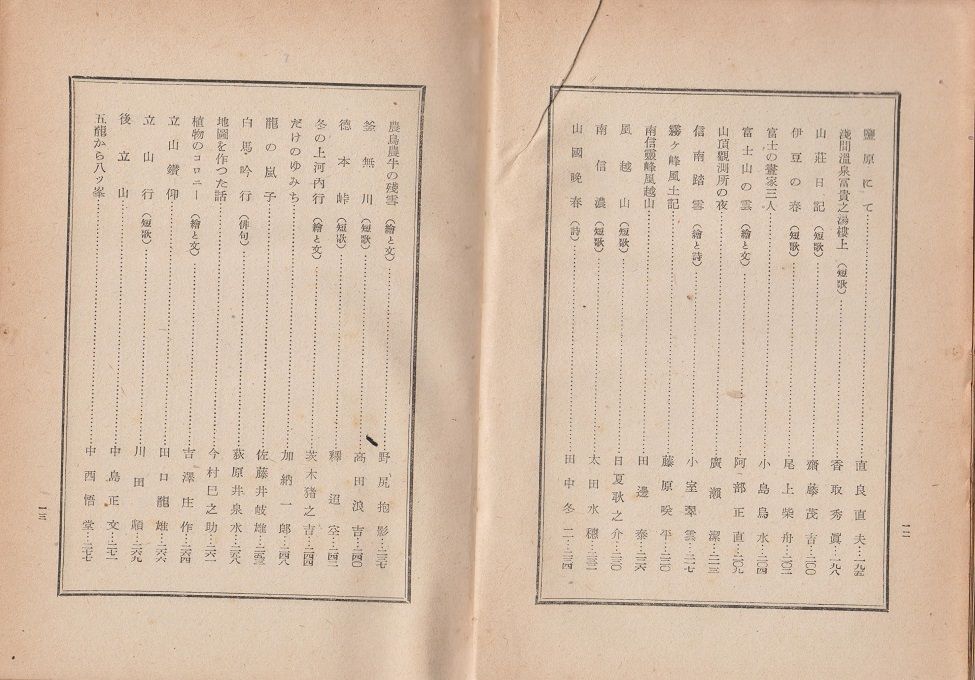 鹽原にて……直良直夫…一九五
淺間溫泉富貴之湯樓上（短歌）……香取秀眞…一九八
山莊日記（短歌）……齋藤茂吉…二〇〇
伊豆の春（短歌）……尾上柴舟…二〇二
富士の畫家三人……小島烏水…二〇四
富士山の雲（繪と文）……阿部正直…二〇九
山頂觀測所の夜……廣瀨潔…二一三
信南踏雲（繪と詩）……小室翠雲…二一七
霧ケ峰風土記……藤原咲平…二二〇
南信靈峰風越山……田邊泰…二二六
風越山（短歌）……日夏耿之介…二三〇
南信濃（短歌）……太田水穗…二三二
山國晩春（詩）……田中冬二…二三四
一二
農鳥農牛の殘雪（繪と文）……野尻抱影…二三七
釜無川（短歌）……高田浪吉…二四〇
德本峠（短歌）……釋迢空…二四二
冬の上河內行（繪と文）……茨木猪之吉…二四四
だけのゆみち……加納一郞…二四八
龍の嵐子……佐藤井岐雄…二五三
白馬吟行（俳句）……荻原井泉水…二五八
地圖を作つた話……今村巳之助…二六一
植物のコロニー（繪と文）……吉澤庄作…二六四
立山鑽仰……田口龍雄…二六六
立山行（短歌）……川田順…二六九
後立山……中島正文…二七一
五龍から八ッ峯……中西悟堂…二七七
一三